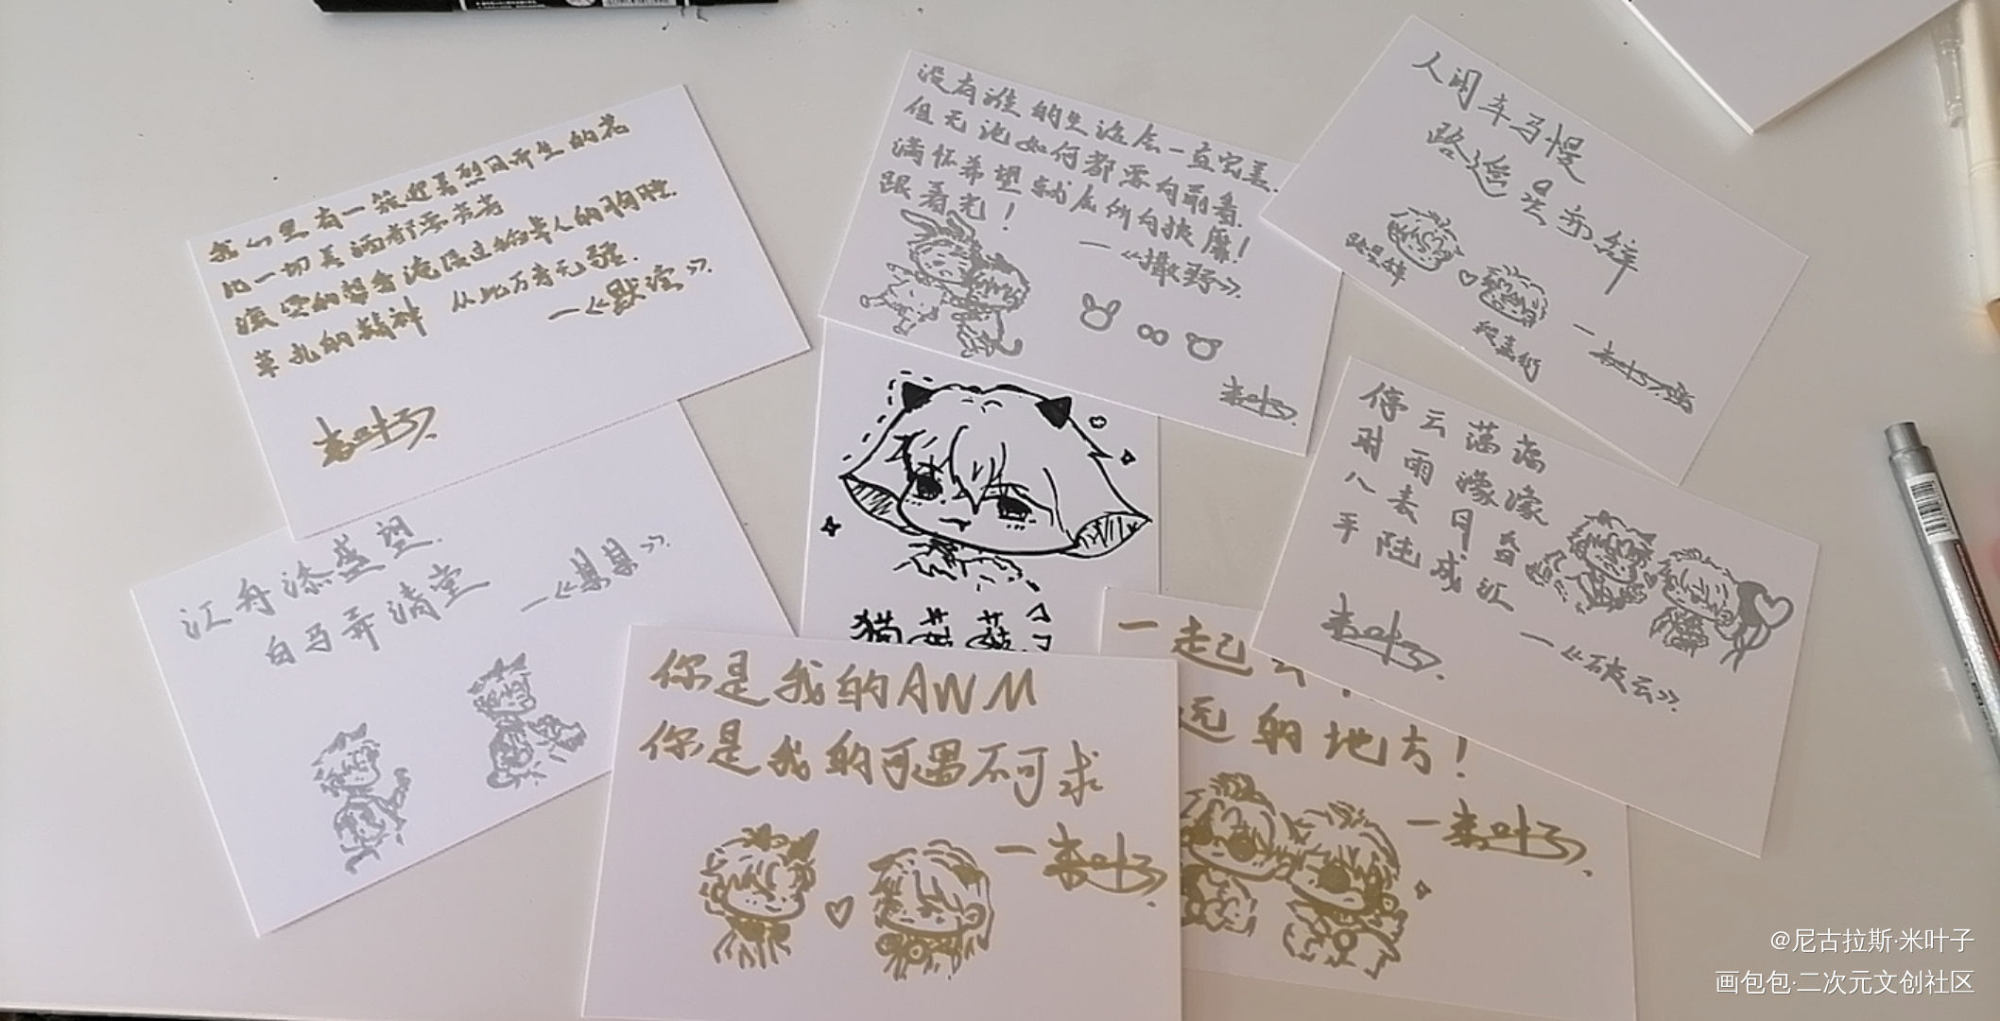 我们里有一簇迎着烈日而生的花
比一切美酒都要芳芳
滚烫的馨香淹没过稻草人的胸膛
草扎的精神 从此万寿无疆.
—《默读》.
米叶子.
没有谁的生活会一直完美.
但无论如何都要向前看.
满怀希望就会所向披靡!
跟着光!
—《撒野》.
米叶子.
人间车马慢
路遥星亦辞
路星辞
段嘉衍
江舟添盛望.
白马弄清堂
—《某某》.
猫菇菇
停云蔼蔼
时雨濛濛
八表同昏
平陆成江
—《破云》.
米叶子.
你是我的AWM
你是我的可遇不可求
—米叶子.
一起去
远的地方!
—米叶子.
@尼古拉斯·米叶子
画包包·二次元文创社区